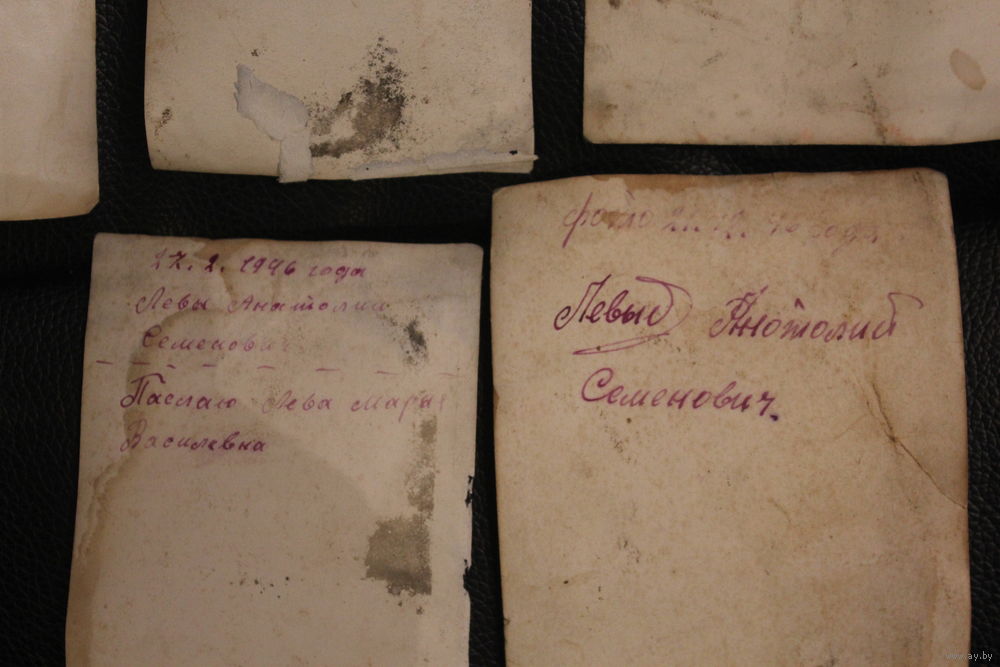 27. 2. 1946 года
Левы Анатолий
Семенович
Паслаю Лева Мария
Василевна
фото 21. 12. 40 года
Левый Анотолий
Семенович.
www.ay.by